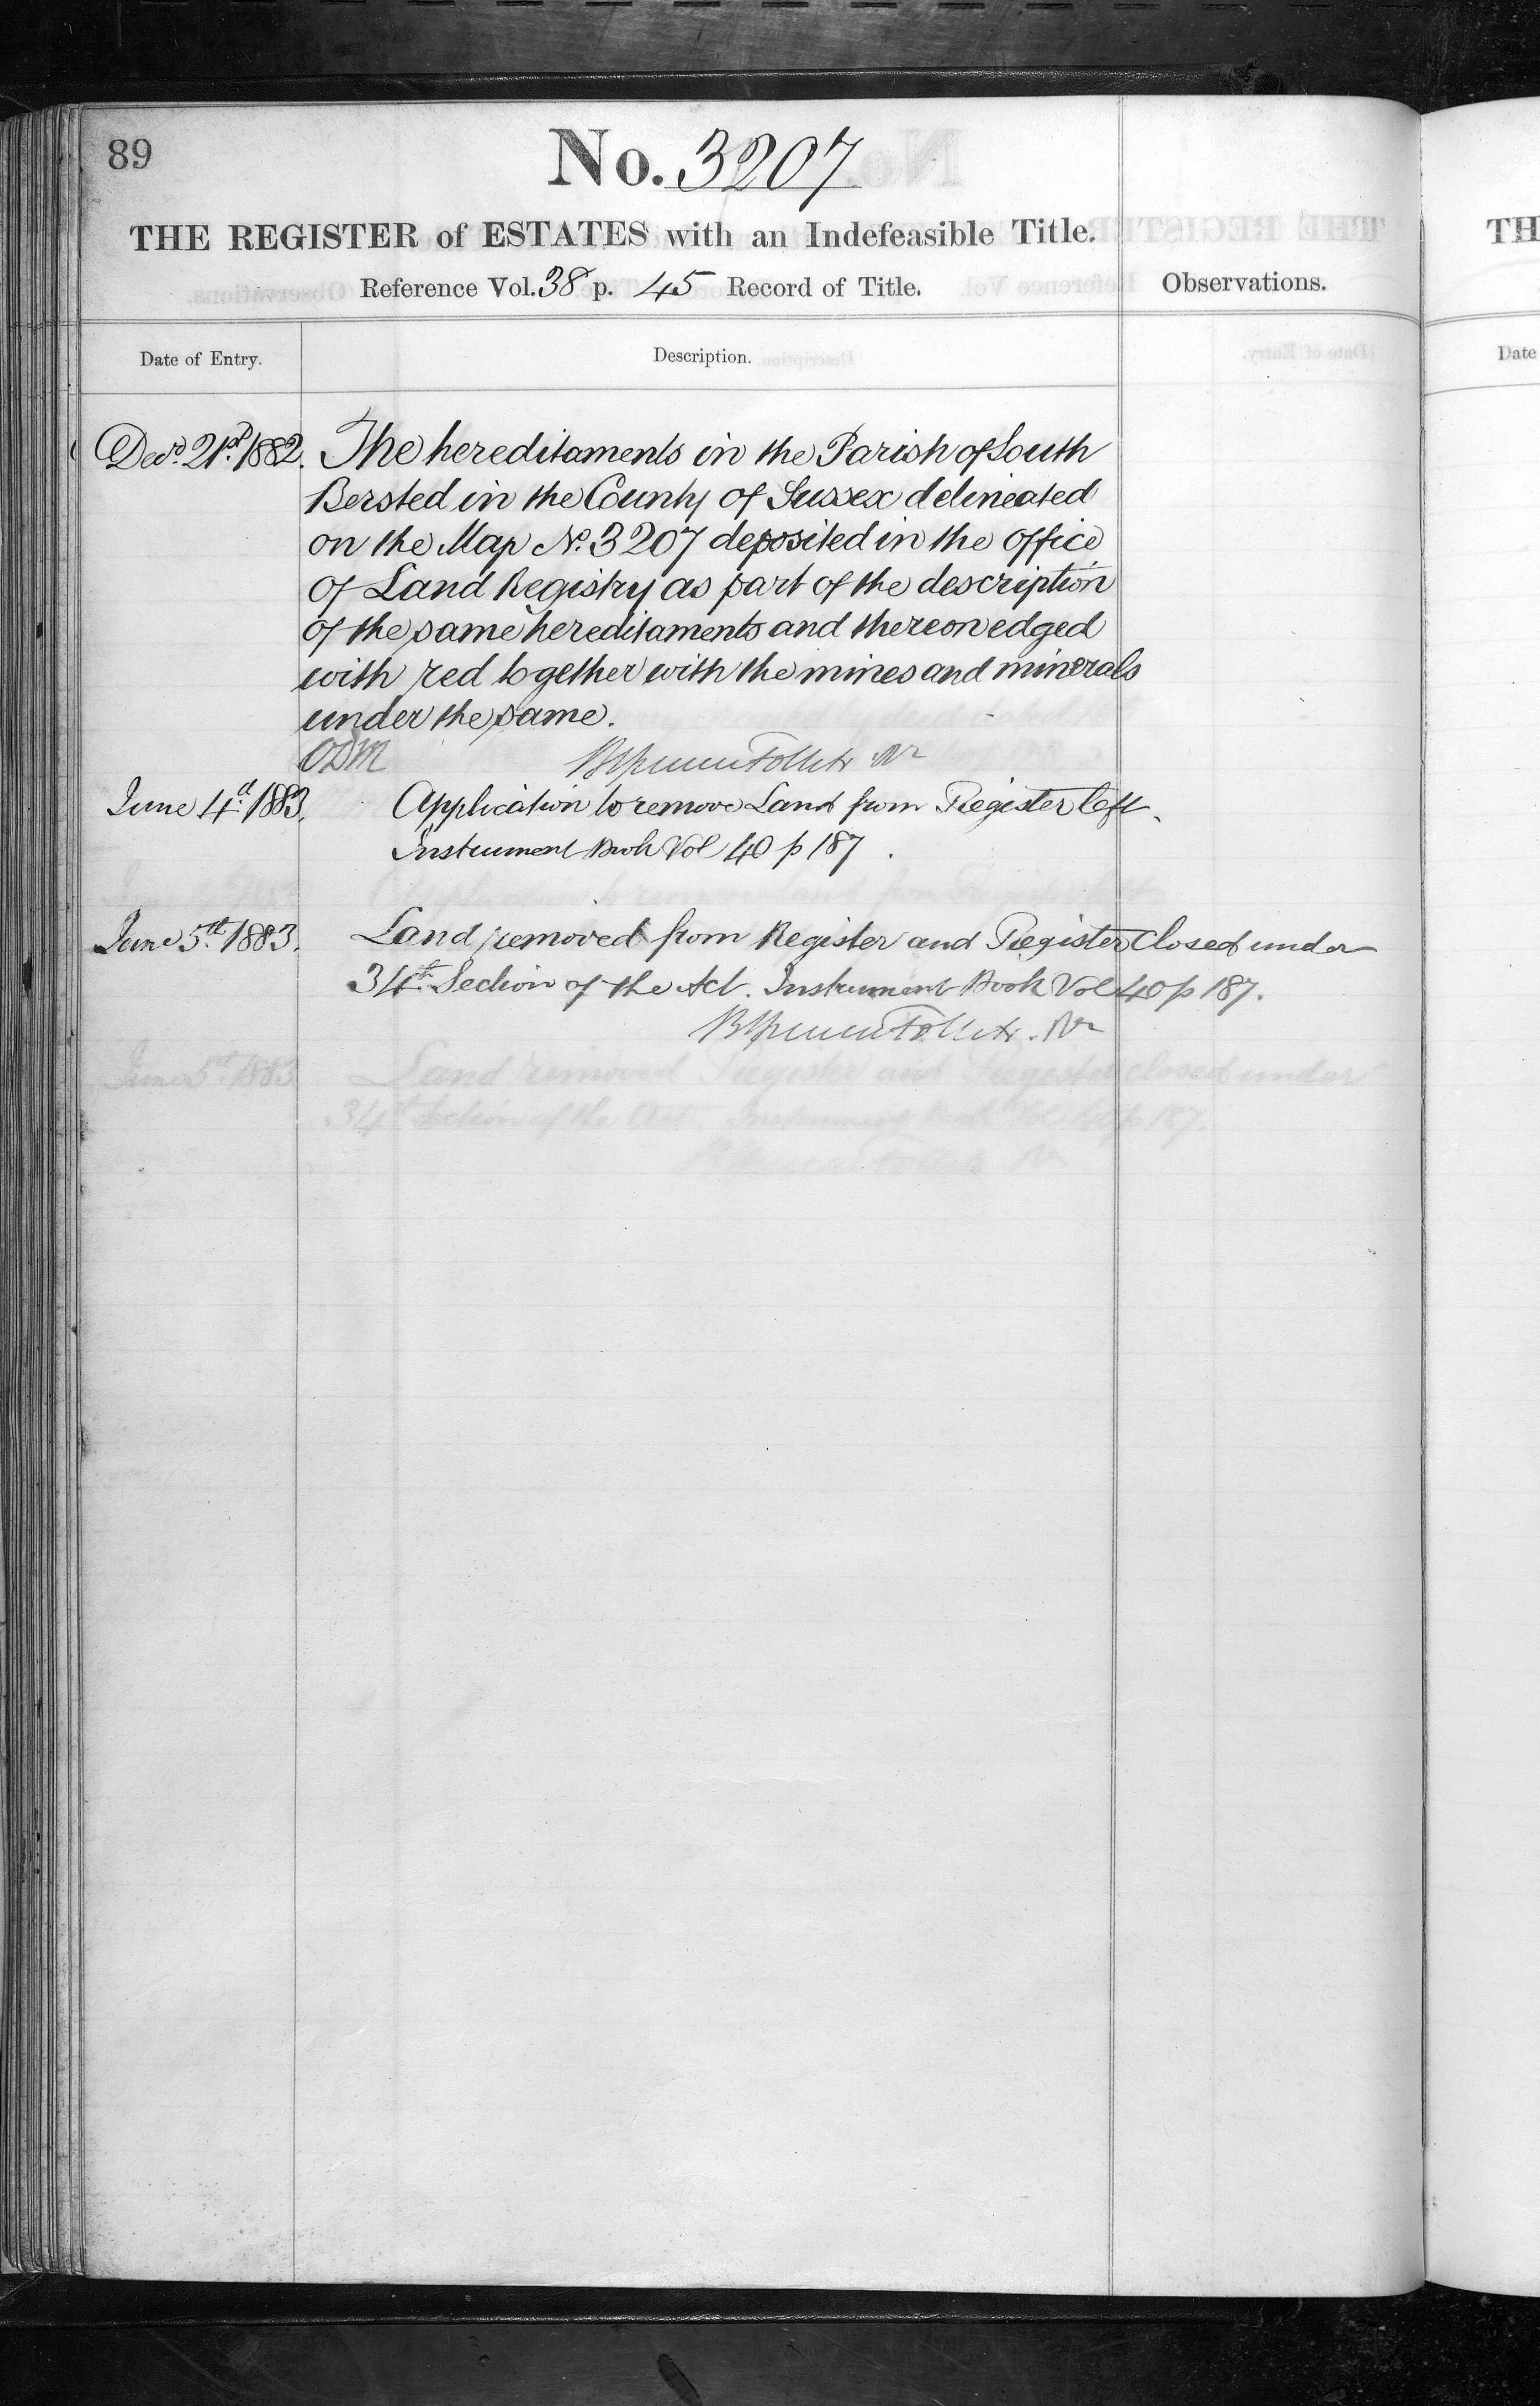 89
No. 3207
THE REGISTER of ESTATES with an Indefeasible Title.
Reference Vol. 38 p. 45 Record of Title.
Observations.
Date of Entry.
Description.
Decr. 21st. 1882. The hereditaments in the Parish of South
Bersted in the County of Sussex delineated
on the Map No. 3207 deposited in the office
of Land Registry as part of the description
of the same hereditaments and thereon edged
with red together with the mines and minerals
under the same.
ODM Follett
June 4th. 1883. Application to remove Land from Register left.
Instrument Book Vol 40 p 187.
June 5th. 1883. Land removed from Register and Register Closed under
34th. Section of the Act. Instrument Book Vol 40 p 187.
Follett.
June 5th. 1883 Land removed Register and Register closed under
34th Section of the Act. Instrument Book Vol 40 p 187.
TH
Date